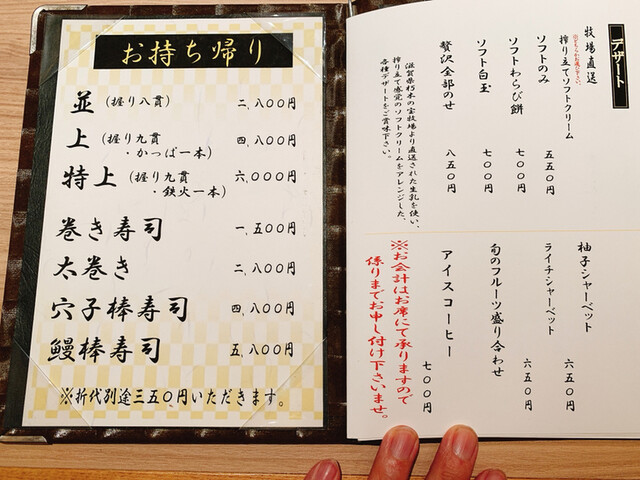 お持ち帰り
並(握り八貫) 二、八〇〇円
上(握り九貫・かっぱ一本) 四、八〇〇円
特上(握り九貫・鉄火一本) 六、〇〇〇円
巻き寿司 一、五〇〇円
太巻き 二、八〇〇円
穴子棒寿司 四、八〇〇円
鰻棒寿司 五、八〇〇円
※折代別途三五〇円いただきます。
デザート
牧場直送
搾り立てソフトクリーム
ソフトのみ 五五〇円
ソフトわらび餅 七〇〇円
ソフト白玉 七〇〇円
贅沢全部のせ 八五〇円
滋賀県朽木の宝牧場より直送された生乳を使い、
搾り立て感覚のソフトクリームをアレンジした、
各種デザートをご賞味下さい。
柚子シャーベット 六五〇円
ライチシャーベット 六五〇円
旬のフルーツ盛り合わせ
アイスコーヒー 七〇〇円
※お会計はお席にて承りますので
係りまでお申し付け下さいませ。